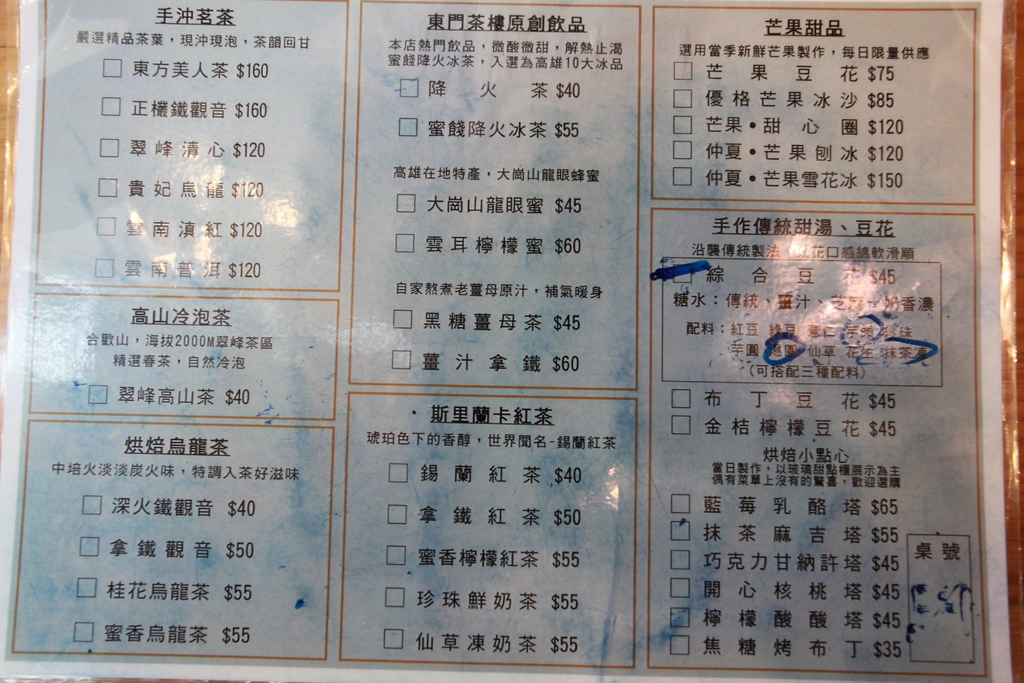 手沖茗茶
嚴選精品茶葉，現沖現泡，茶韻回甘
東方美人茶 $160
正欉鐵觀音 $160
翠峰清心 $120
貴妃烏龍 $120
雲南滇紅 $120
雲南普洱 $120
高山冷泡茶
合歡山，海拔2000M翠峰茶區
精選春茶，自然冷泡
翠峰高山茶 $40
烘焙烏龍茶
中培火淡淡炭火味，特調入茶好滋味
深火鐵觀音 $40
拿鐵觀音 $50
桂花烏龍茶 $55
蜜香烏龍茶 $55
東門茶樓原創飲品
本店熱門飲品，微酸微甜，解熱止渴
蜜餞降火冰茶，入選為高雄10大冰品
降火茶 $40
蜜餞降火冰茶 $55
高雄在地特產，大崗山龍眼蜂蜜
大崗山龍眼蜜 $45
雲耳檸檬蜜 $60
自家熬煮老薑母原汁，補氣暖身
黑糖薑母茶 $45
薑汁拿鐵 $60
斯里蘭卡紅茶
琥珀色下的香醇，世界聞名-錫蘭紅茶
錫蘭紅茶 $40
拿鐵紅茶 $50
蜜香檸檬紅茶 $55
珍珠鮮奶茶 $55
仙草凍奶茶 $55
芒果甜品
選用當季新鮮芒果製作，每日限量供應
芒果豆花 $75
優格芒果冰沙 $85
芒果•甜心圈 $120
仲夏•芒果刨冰 $120
仲夏•芒果雪花冰 $150
手作傳統甜湯、豆花
沿襲傳統製法 豆花口感綿軟滑順
綜合豆花 $45
糖水：傳統、薑汁、 奶香濃
配料：紅豆 綠豆 薏仁 芋頭 珍珠
芋圓 湯圓 仙草 花生 抹茶凍
(可搭配三種配料)
布丁豆花 $45
金桔檸檬豆花 $45
烘焙小點心
當日製作，以玻璃甜點櫃展示為主
偶有菜單上沒有的驚喜，歡迎選購
藍莓乳酪塔 $65
抹茶麻吉塔 $55
巧克力甘納許塔 $45
開心核桃塔 $45
檸檬酸酸塔 $45
焦糖烤布丁 $35
桌號